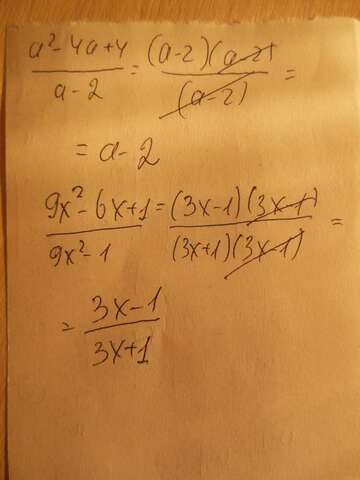 a²-4a+4/a-2 = (a-2)(a-2)/(a-2) =
= a-2
9x²-6x+1/9x²-1 = (3x-1)(3x-1)/(3x+1)(3x-1) =
= 3x-1/3x+1